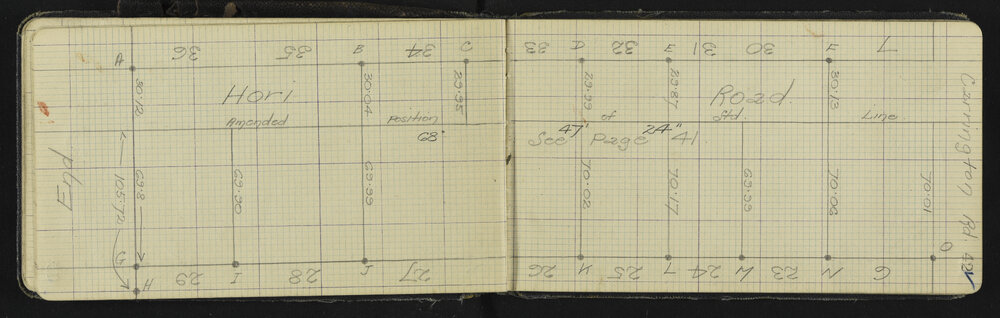 A 36 35 B 34 C 33 D 32 E 31 30 F 7
Hori Road.
Amended Position of Std. Line.
68' 47' 24"
See Page 41.
30.12 30.04 29.95 29.99 29.87 30.13
69.8 69.90 69.99 70.02 70.17 69.99 70.06 70.01
105.72
Eyd
G
H 29 I 28 J 27 26 K 25 L 24 M 23 N 6 O
Carrington Rd. 42